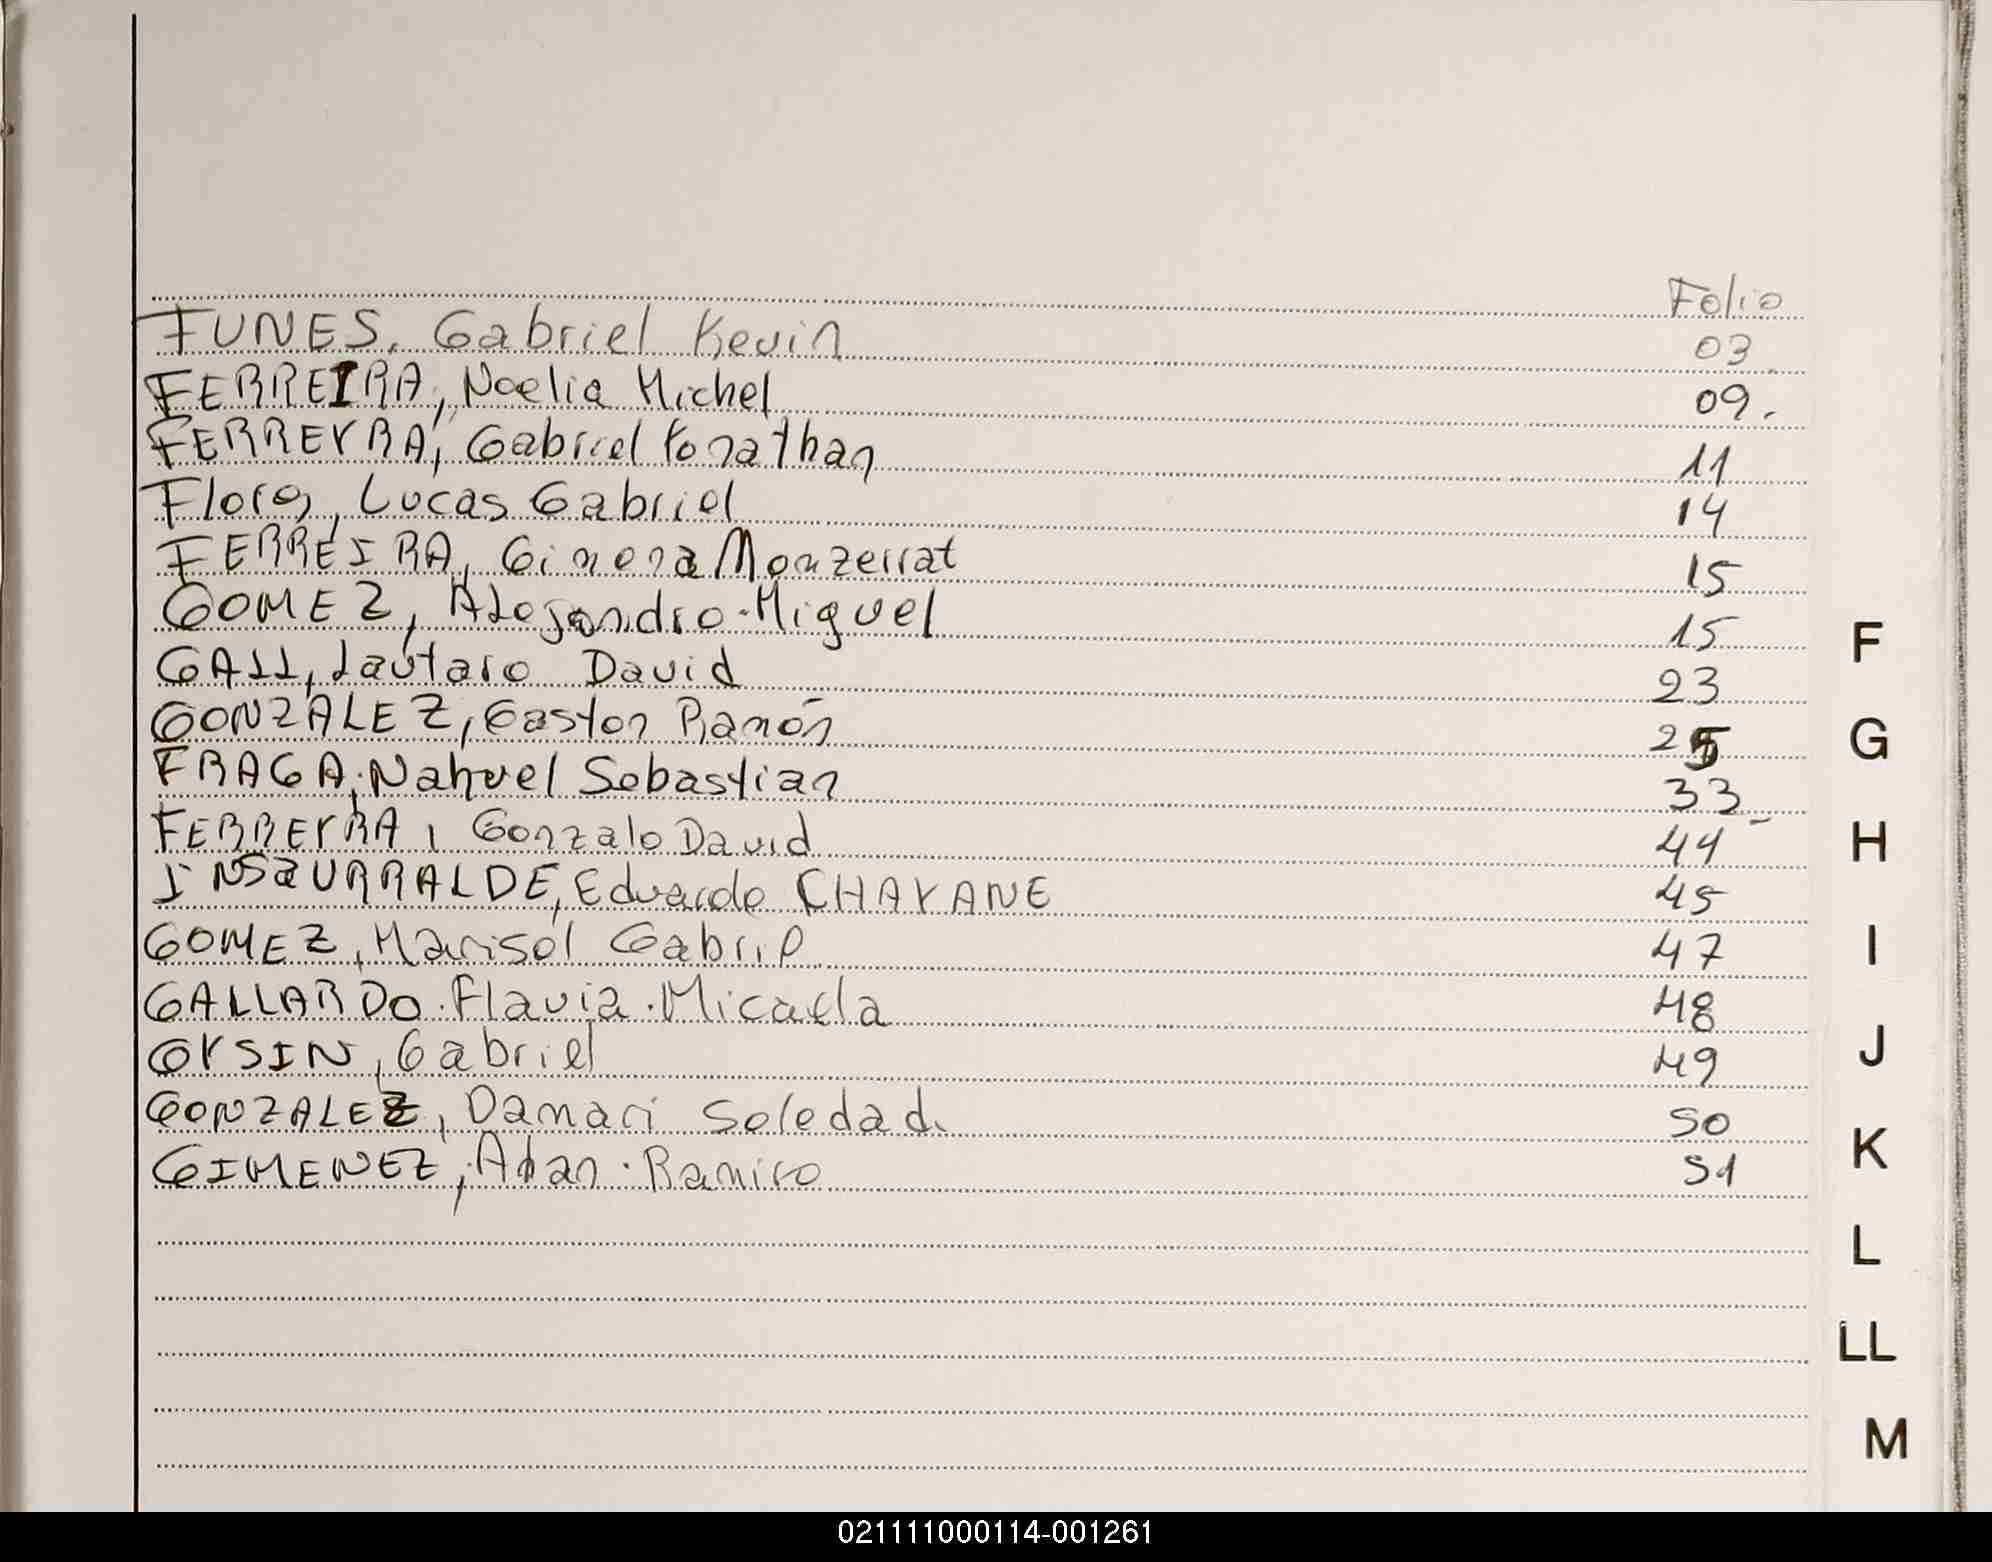 Folio
FUNES, Gabriel Kevin 03
FERREIRA, Noelia Michel 09.
FERREYRA, Gabriel Yonathan 11
Flores, Lucas Gabriel 14
FERREIRA, Gimena Monzerrat 15
GOMEZ, Alejandro Miguel 15
GALL, Lautaro David 23
GONZALEZ, Gaston Ramón 25
FRAGA, Nahuel Sebastian 33
FERREYRA, Gonzalo David 44
INSZURRALDE, Eduardo CHAYANE 45
GOMEZ, Marisol 47
GALLARDO Flavia Micaela 48
Gabriel 49
GONZALEZ, Damari Soledad. 50
GIMENEZ, Adan Ramiro 51
F
G
H
I
J
K
L
LL
M
021111000114-001261